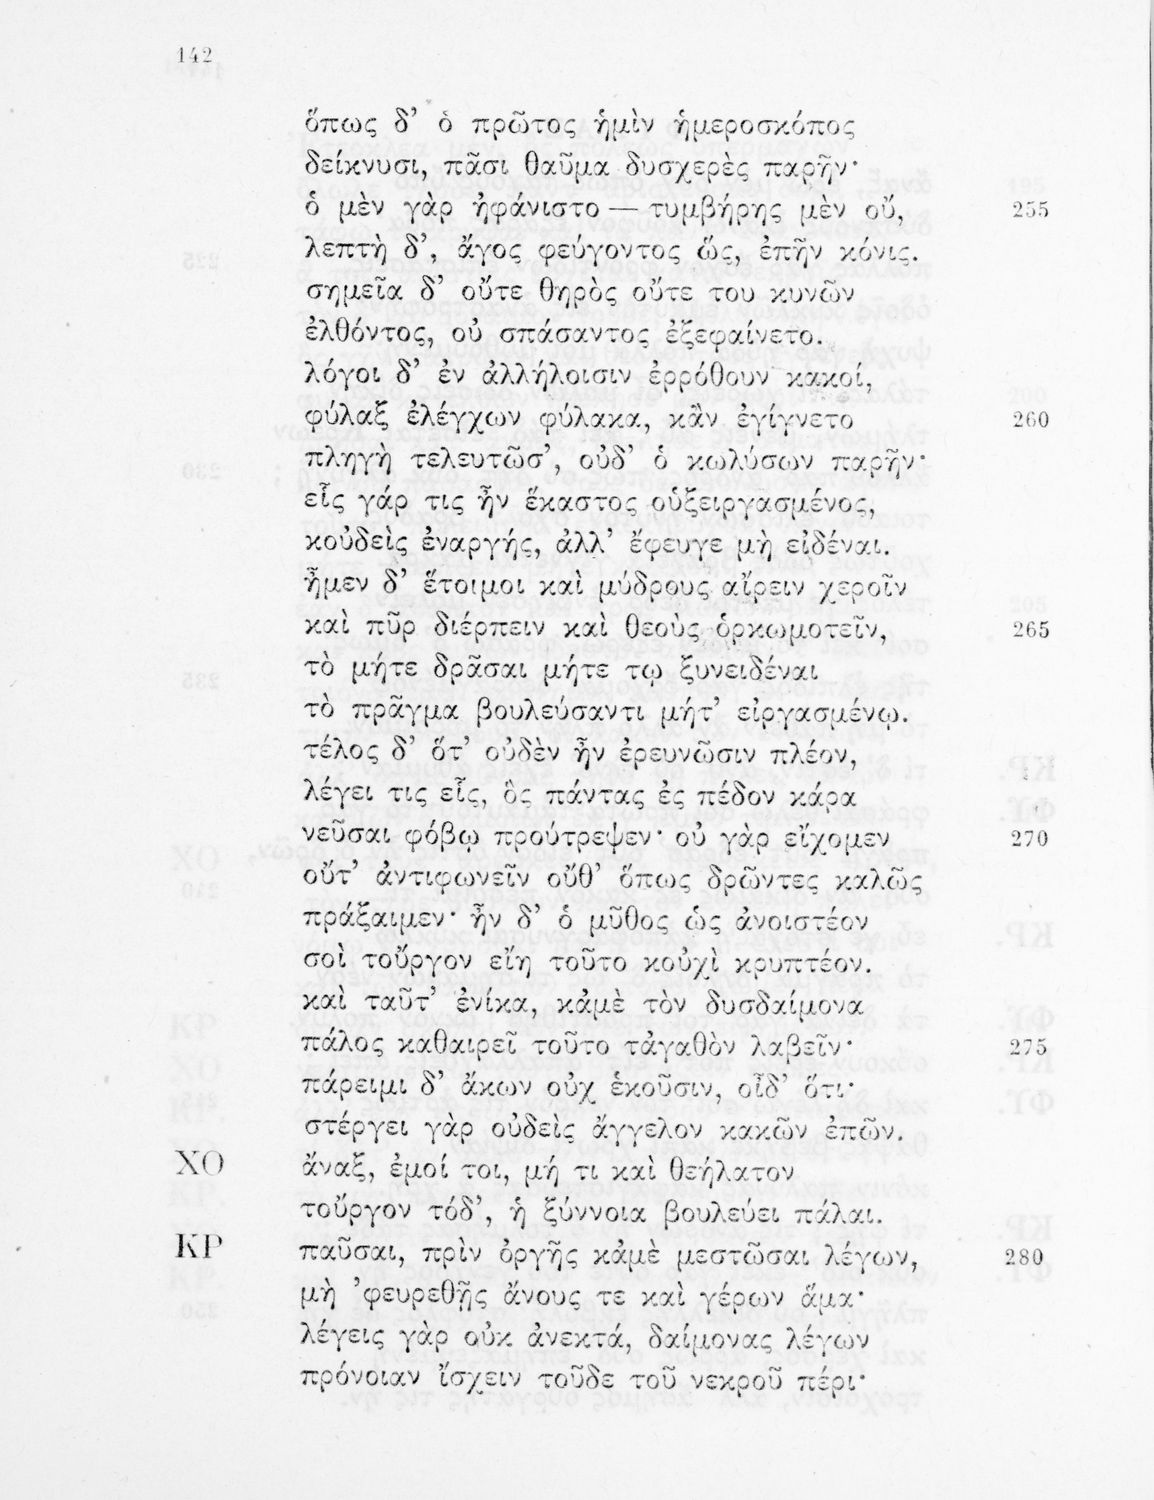 142
ὅπως δ’ ὁ πρῶτος ἡμὶν ἡμεροσκόπος
δείκνυσι, πᾶσι θαῦμα δυσχερὲς παρῆν·
ὁ μὲν γὰρ ἠφάνιστο — τυμβήρης μὲν οὔ, 255
λεπτὴ δ’, ἄγος φεύγοντος ὥς, ἐπῆν κόνις.
σημεῖα δ’ οὔτε θηρὸς οὔτε του κυνῶν
ἐλθόντος, οὐ σπάσαντος ἐξεφαίνετο.
λόγοι δ’ ἐν ἀλλήλοισιν ἐρρόθουν κακοί,
φύλαξ ἐλέγχων φύλακα, κἂν ἐγίγνετο 260
πληγὴ τελευτῶσ’, οὐδ’ ὁ κωλύσων παρῆν·
εἷς γάρ τις ἦν ἕκαστος οὑξειργασμένος,
κοὐδεὶς ἐναργής, ἀλλ’ ἔφευγε μὴ εἰδέναι.
ἦμεν δ’ ἕτοιμοι καὶ μύδρους αἴρειν χεροῖν
καὶ πῦρ διέρπειν καὶ θεοὺς ὁρκωμοτεῖν, 265
τὸ μήτε δρᾶσαι μήτε τῳ ξυνειδέναι
τὸ πρᾶγμα βουλεύσαντι μήτ’ εἰργασμένῳ.
τέλος δ’ ὅτ’ οὐδὲν ἦν ἐρευνῶσιν πλέον,
λέγει τις εἷς, ὃς πάντας ἐς πέδον κάρα
νεῦσαι φόβῳ προύτρεψεν· οὐ γὰρ εἴχομεν 270
οὔτ’ ἀντιφωνεῖν οὔθ’ ὅπως δρῶντες καλῶς
πράξαιμεν· ἦν δ’ ὁ μῦθος ὡς ἀνοιστέον
σοὶ τοὔργον εἴη τοῦτο κοὐχὶ κρυπτέον.
καὶ ταῦτ’ ἐνίκα, κἀμὲ τὸν δυσδαίμονα
πάλος καθαιρεῖ τοῦτο τἀγαθὸν λαβεῖν· 275
πάρειμι δ’ ἄκων οὐχ ἑκοῦσιν, οἶδ’ ὅτι·
στέργει γὰρ οὐδεὶς ἄγγελον κακῶν ἐπῶν.
ΧΟ ἄναξ, ἐμοί τοι, μή τι καὶ θεήλατον
τοὔργον τόδ’, ἡ ξύννοια βουλεύει πάλαι.
ΚΡ παῦσαι, πρὶν ὀργῆς κἀμὲ μεστῶσαι λέγων, 280
μὴ ’φευρεθῇς ἄνους τε καὶ γέρων ἅμα·
λέγεις γὰρ οὐκ ἀνεκτά, δαίμονας λέγων
πρόνοιαν ἴσχειν τοῦδε τοῦ νεκροῦ πέρι·